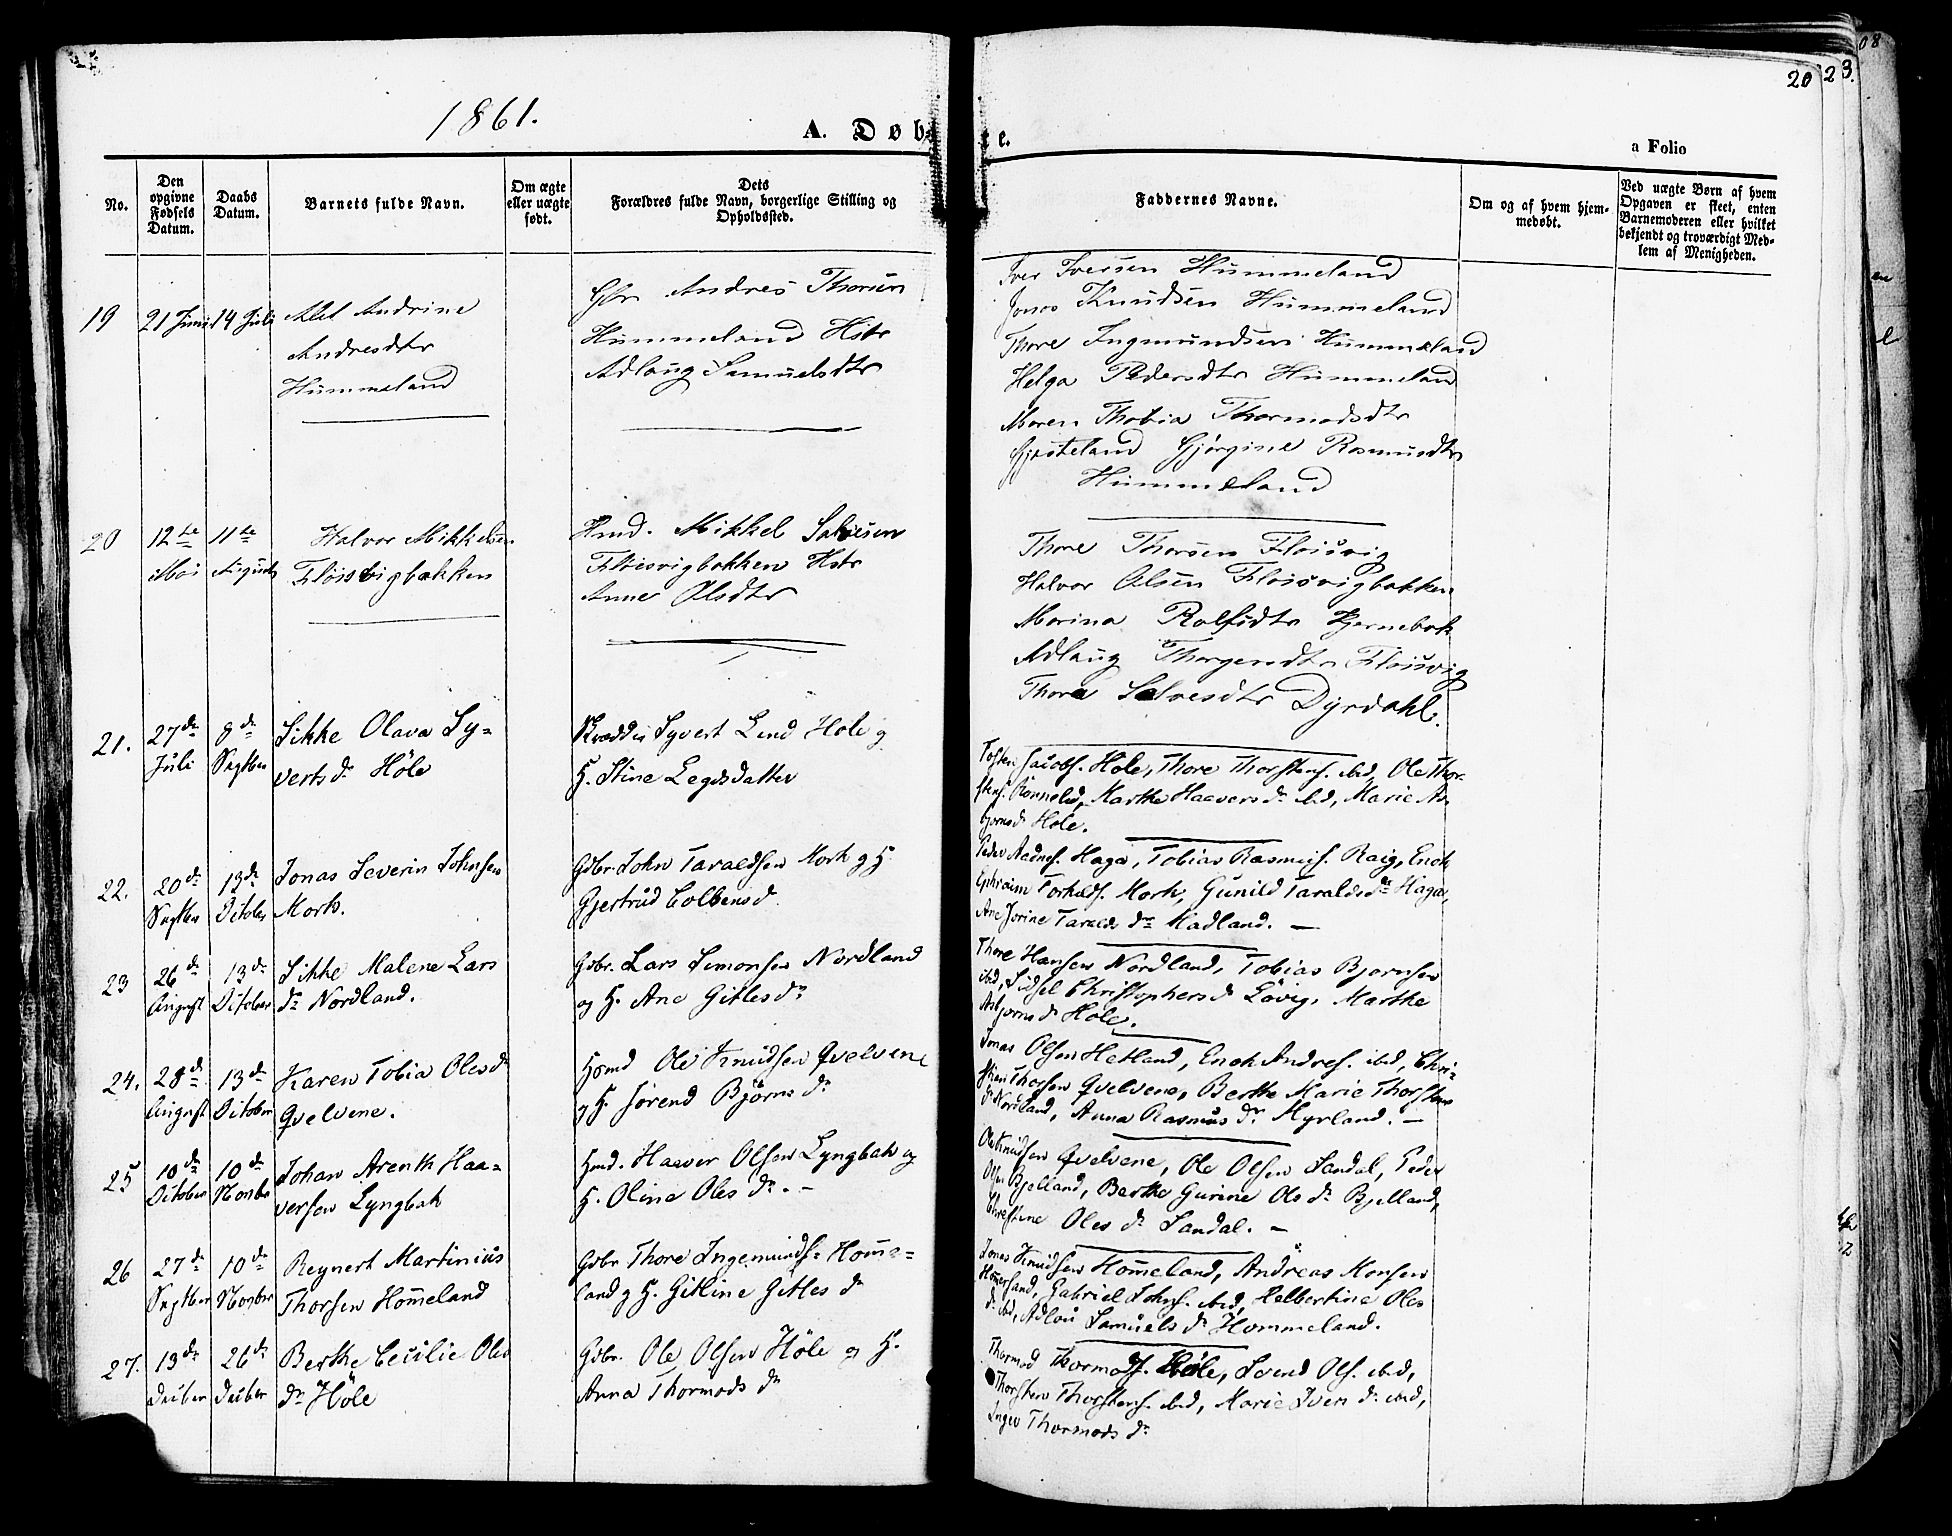 1861.
A. Døbte.
a Folio
20
23.
No.
Den opgivne Fødsels Datum.
Daabs Datum.
Barnets fulde Navn.
Om ægte eller uægte født.
Dets Forældres fulde Navn, borgerlige Stilling og Opholdssted.
Faddernes Navne.
Om og af hvem hjemmedøbt.
Ved uægte Børn af hvem Opgaven er skeet, enten Barnemoderen eller hvilket bekjendt og troværdigt Medlem af Menigheden.
19
21 Juni
14 Juli
Alet Andrine
Andresdtr
Hummeland
Gbr Andres Thorsen
Hummeland Hstr
Adlaug Samuelsdtr
Iver Iversen Hummeland
Jonas Knudsen Hummeland
Thore Ingmundsen Hummeland
Helga Pedersdtr Hummeland
Maren Thobia Thormodsdtr
Gjusteland Gjørgine Rasmusdtr
Hummeland
20
12te
Mai
11te
August
Halvor Mikkelsen
Floisvigbakken
Hmd. Mikkel Salvesen
Floisvigbakken Hstr
Anne Olsdtr
Thore Thorsen Floisvig
Halvor Olsen Floisvigbakken
Marina Rolfsdtr Kjernebak
Adlaug Thorgersdtr Floisvig
Thora Salvesdtr Dyrdahl.
21.
27de
Juli
8de
Septbr
Sikke Olava Sy=
vertsdr Höle
Skrædder Syvert Lund Hole og
H. Stine Legdsdatter
Tosten Jacobs. Hole, Thore Thorstens. ibid, Ole Thor-
stens. Rønnelid, Marthe Haaversdr ibid, Marie As-
bjornsdr Hole.
22.
20de
Septbr
13de
October
Jonas Severin Johnsen
Mork.
Gdbr. John Taraldsen Mork og H.
Gjertrud Colbensd.
Peder Aadnes. Haga, Tobias Rasmus. Raig, Enok
Ephraim Torkelds. Mork, Gunild Taraldsdr Haga,
Ane Jorine Taralds dr Madland. —
23
26de
August
13de
October
Sikke Malene Lars
dr Nordland.
Gdbr. Lars Simonsen Nordland
og H. Ane Gitlesdr
Thore Hansen Nordland, Tobias Bjornsen
ibid, Sidsel Christophersdr Lövig, Marthe
Asbjornsdr Hole.
24.
28de
August
13de
October
Karen Tobia Olesdr
Qvelvene.
Hsmd Ole Knudsen Qvelvene
og H. Sörend Björns dr
Jonas Olsen Hetland, Enok Andres. ibid, Chri-
stian Thorsen Qvelvene, Berthe Marie Thorstens
dr Nordland, Anna Rasmus dr Myrland. —
25
10de
October
10de
Novbr
Johan Arenth Haa=
versen Lyngbak
Hmd. Haaver Olsen Lyngbak og
H. Oline Oles dr. —
Ole Knudsen Qvelvene, Ole Olsen Sandal, Peder
Olsen Bjelland, Berthe Gurine Ols dr Bjelland,
Christine Oles dr Sandal. —
26
27de
Septber
10de
Novbr
Reynert Martinius
Thorsen Hom̄eland
Gdbr Thore Ingemunds= Hom̄e=
land og H. Gitline Gitles dr
Jonas Knudsen Hom̄eland, Andreas Monsen
Hom̄ersand, Gabriel Johns. ibid, Helbertine Oles
dr ibid, Adlou Samuels dr Hommeland.
27.
13de
Decber
26de
Decber
Berthe Cecilie Oles
dr Höle
Gdbr. Ole Olsen Höle og H.
Anna Thormods dr
Thormod Thormods. Höle, Svend Ols. ibid,
Thorsten Thorstens. ibid, Marie Ivers dr ibid,
Inger Thormods dr